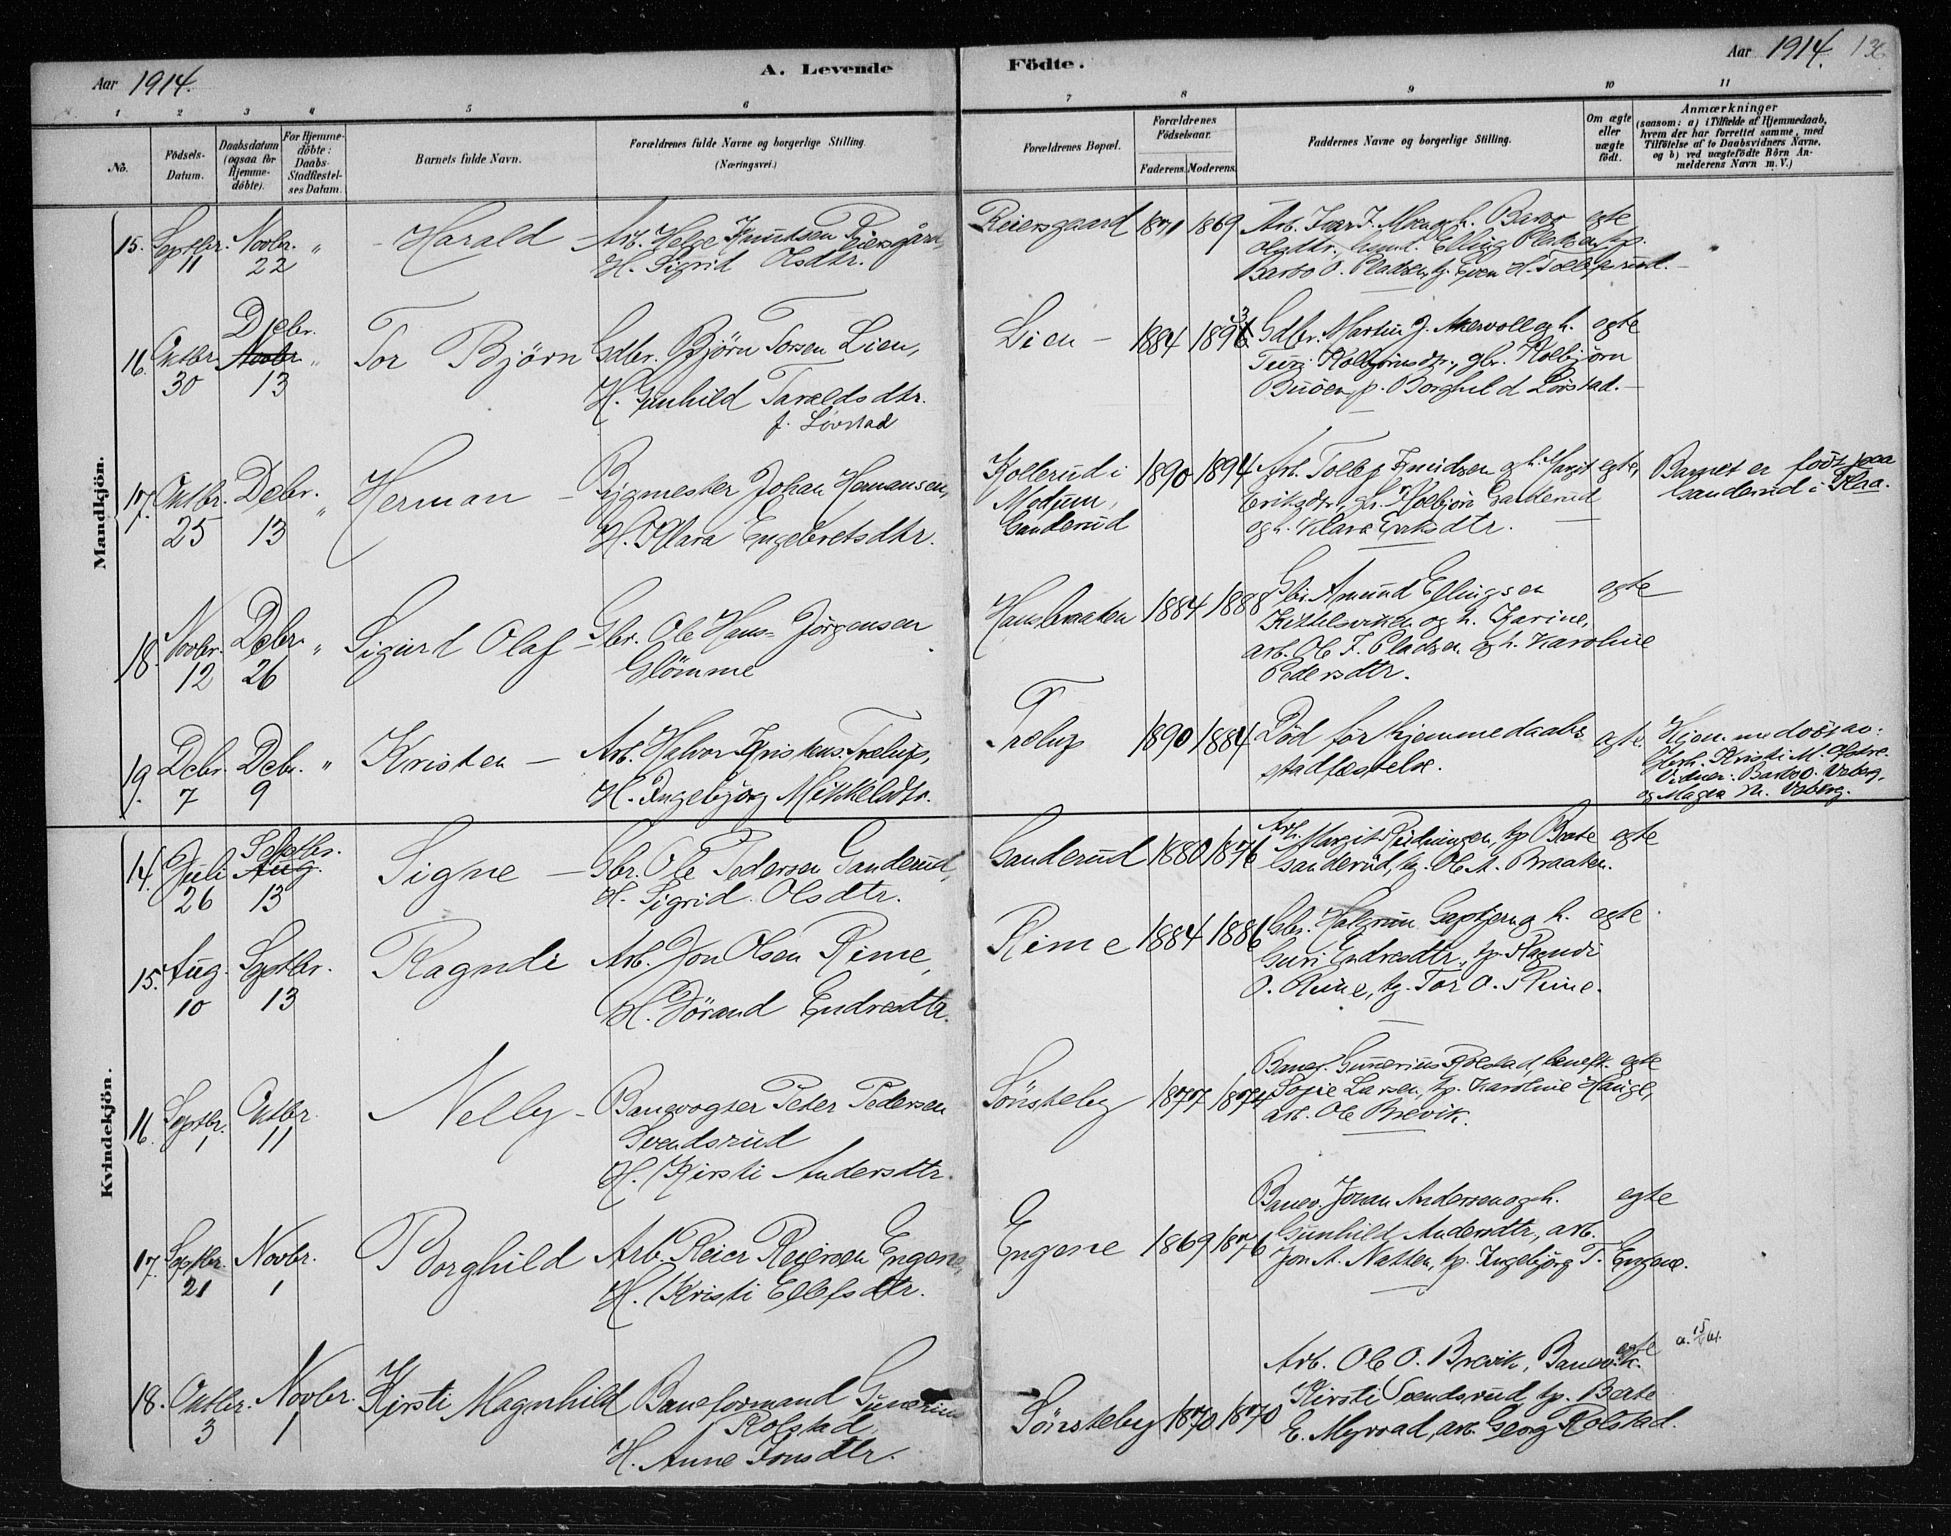 Aar 1914.
A. Levende
Födte.
Aar 1914.
1 2 3 4 5 6 7 8 9 10 11
No.
Födsels-
Datum.
Daabsdatum
(ogsaa for
Hjemme-
döbte).
For Hjemme-
döbte:
Daabs-
Stadfæstel-
ses Datum.
Barnets fulde Navn.
Forældrenes fulde Navne og borgerlige Stilling.
(Næringsvei.)
Forældrenes Bopæl.
Forældrenes
Födselsaar.
Faderens. Moderens.
Faddernes Navne og borgerlige Stilling.
Om ægte
eller
uægte
födt.
Anmærkninger
(saasom: a) i Tilfælde af Hjemmedaab,
hvem der har forrettet samme, med
Tilföielse af to Daabsvidners Navne,
og b) ved uægtefödte Börn An-
melderens Navn m. V.)
Mandkjön.
15. Septbr. 11 Novbr. 22 " Harald
Arb. Helge Knutsen Reiersgård
H. Sigrid Olsdtr.
Reiersgaard 1871 1869
Barbo
egte
Olsdtr., Elling Pladsen, tp.
Barbo O. Pladsen, tg. Even H. Tollefsrud.
16. Oktbr 30 Dcbr. Novbr 13 " Tor Björn
Gdbr. Björn Torsen Lien,
H. Gunhild Taraldsdtr.
f. Lörstad
Lien 1884 1893
Gdbr. Martin J. Akervold og h. egte
Turi Kolbjörnsdtr., gbr. Kolbjörn
Buöen, p. Borghild Lörstad.
17. Oktbr. 25 Debr. 13 " Herman
Bygmester Johan Hemansen,
H. Klara Engebretsdtr.
Kollerud i
Modum,
Ganderud
1890 1894
Arb. Tollef Knudsen og h. Margit egte,
Eriksdtr., Kolbjörn Ganderud
og h. Klara Eriksdtr.
Barnet er födt paa
Ganderud i Flaa.
18. Novbr. 12 Debr. 26 " Sigurd Olaf
Gbr. Ole Hans= Jörgensen
Glömme
Hansbraaten 1884 1888
Gbr. Amund Ellingsen egte
Kittelsviken og h. Karine,
arb. Ole F. Pladsen og h. Karoline
Pedersdtr.
19. Debr. 7 Debr. 9 " Kristen
Arb. Halvor Kristens. Trolup,
H. Ingebjörg Mikkelsdtr.
Trolup 1890 1884
Död för hjemmedaabs
stadfæstelse.
egte.
Hjemmedöbt av:
Kristi M.
Vidner: Barbo O. Vaberg,
og Magda M. Vaberg.
Kvindekjön.
14. Juli 26 Septbr. Aug. 13 Signe
Gbr. Ole Pedersen Ganderud,
H. Sigrid Olsdtr.
Ganderud 1880 1876
Arb. Margit Rudningen, tp. Beate egte
Ganderud, tg. Ole A. Braaten.
15. Aug. 10 Septbr. 13 Ragndi
Arb. Jon Olsen Rime,
H. Jörand Endresdtr.
Rime 1884 1886
Gbr. Halgrim Gaptjern og h. egte
Guri Endresdtr., tp. Ragndi
O. Rime, tg. Tor O. Rime.
16. Septbr. 1 Oktbr. 11 Nelly
Banevogter Peter Pedersen
Svendsrud
H. Kirsti Andersdtr.
Sönsteby 1877 1874
Banef. Gunerius Rolstad, egte
Sofie Larsen, tp. Karoline Hauge,
arb. Ole Brevik.
17. Septbr. 21 Novbr. 1 Borghild
Arb. Reier Reiersen Engene,
H. Kristi Ellefsdtr.
Engene 1869 1876
Banev. Johan Andersen og h. egte
Gunhild Andersdtr., arb.
Jon A. Natten, tp. Ingebjörg T. Engene.
18. Oktbr. 3 Novbr. 1 Kirsti Magnhild
Baneformand Gunerius
Rolstad
H. Anne Jonsdtr.
Sönsteby 1870 1870
Arb. Ole O. Brevik, Banev. k. egte
Kirsti Svendsrud, tp. Beate
E. Myrvad, arb. Georg Rolstad.